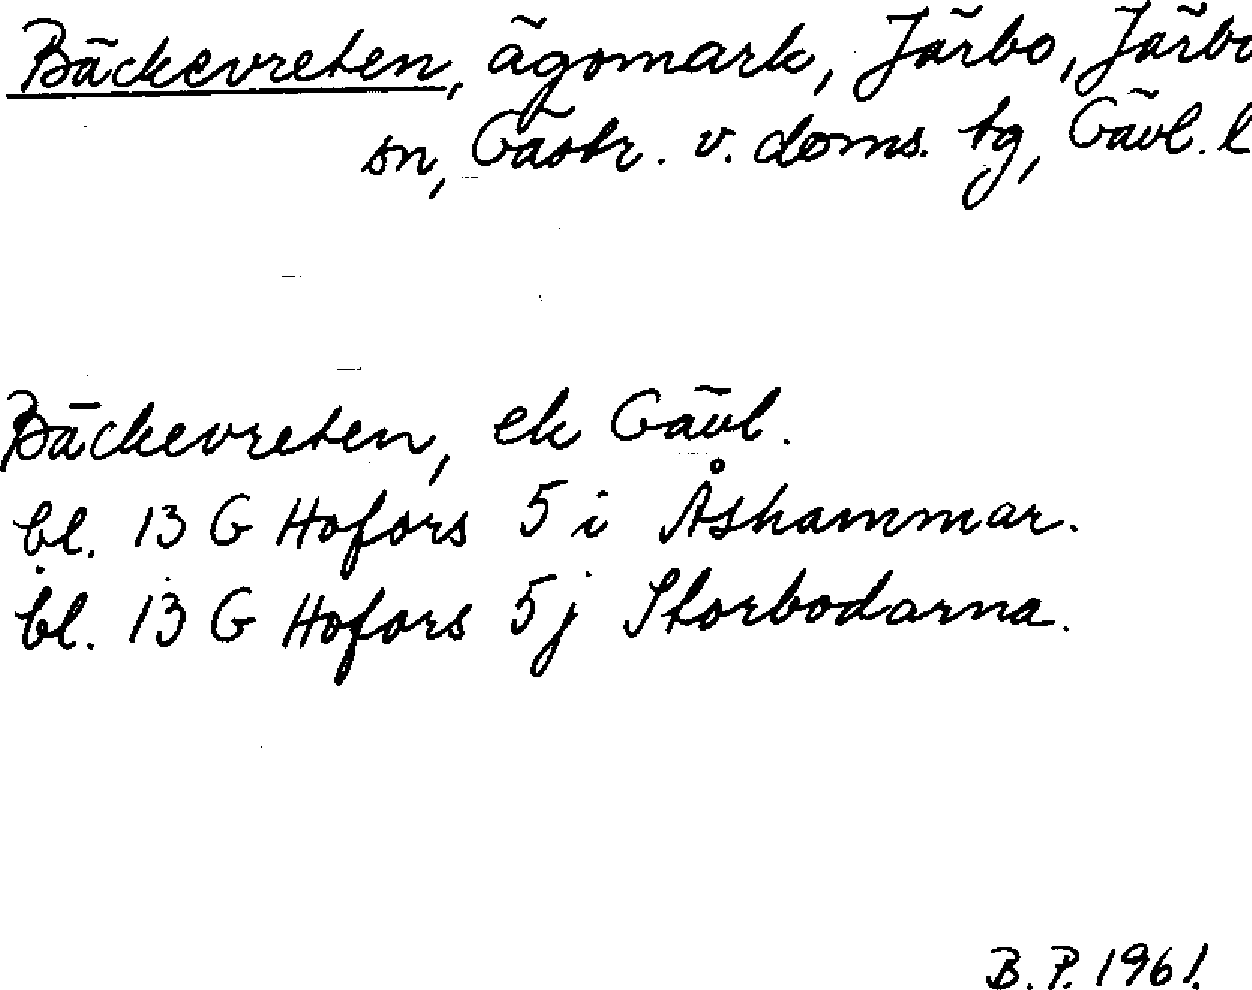 Bäckevreten, ägomark, Järbo, Järbo
sn, Gästr. v. doms. tg, Gävl. l
Bäckevreten, ek Gävl.
bl. 13 G Hofors 5 i Åshammar.
bl. 13 G Hofors 5 j Storbodarna.
B. P. 1961.